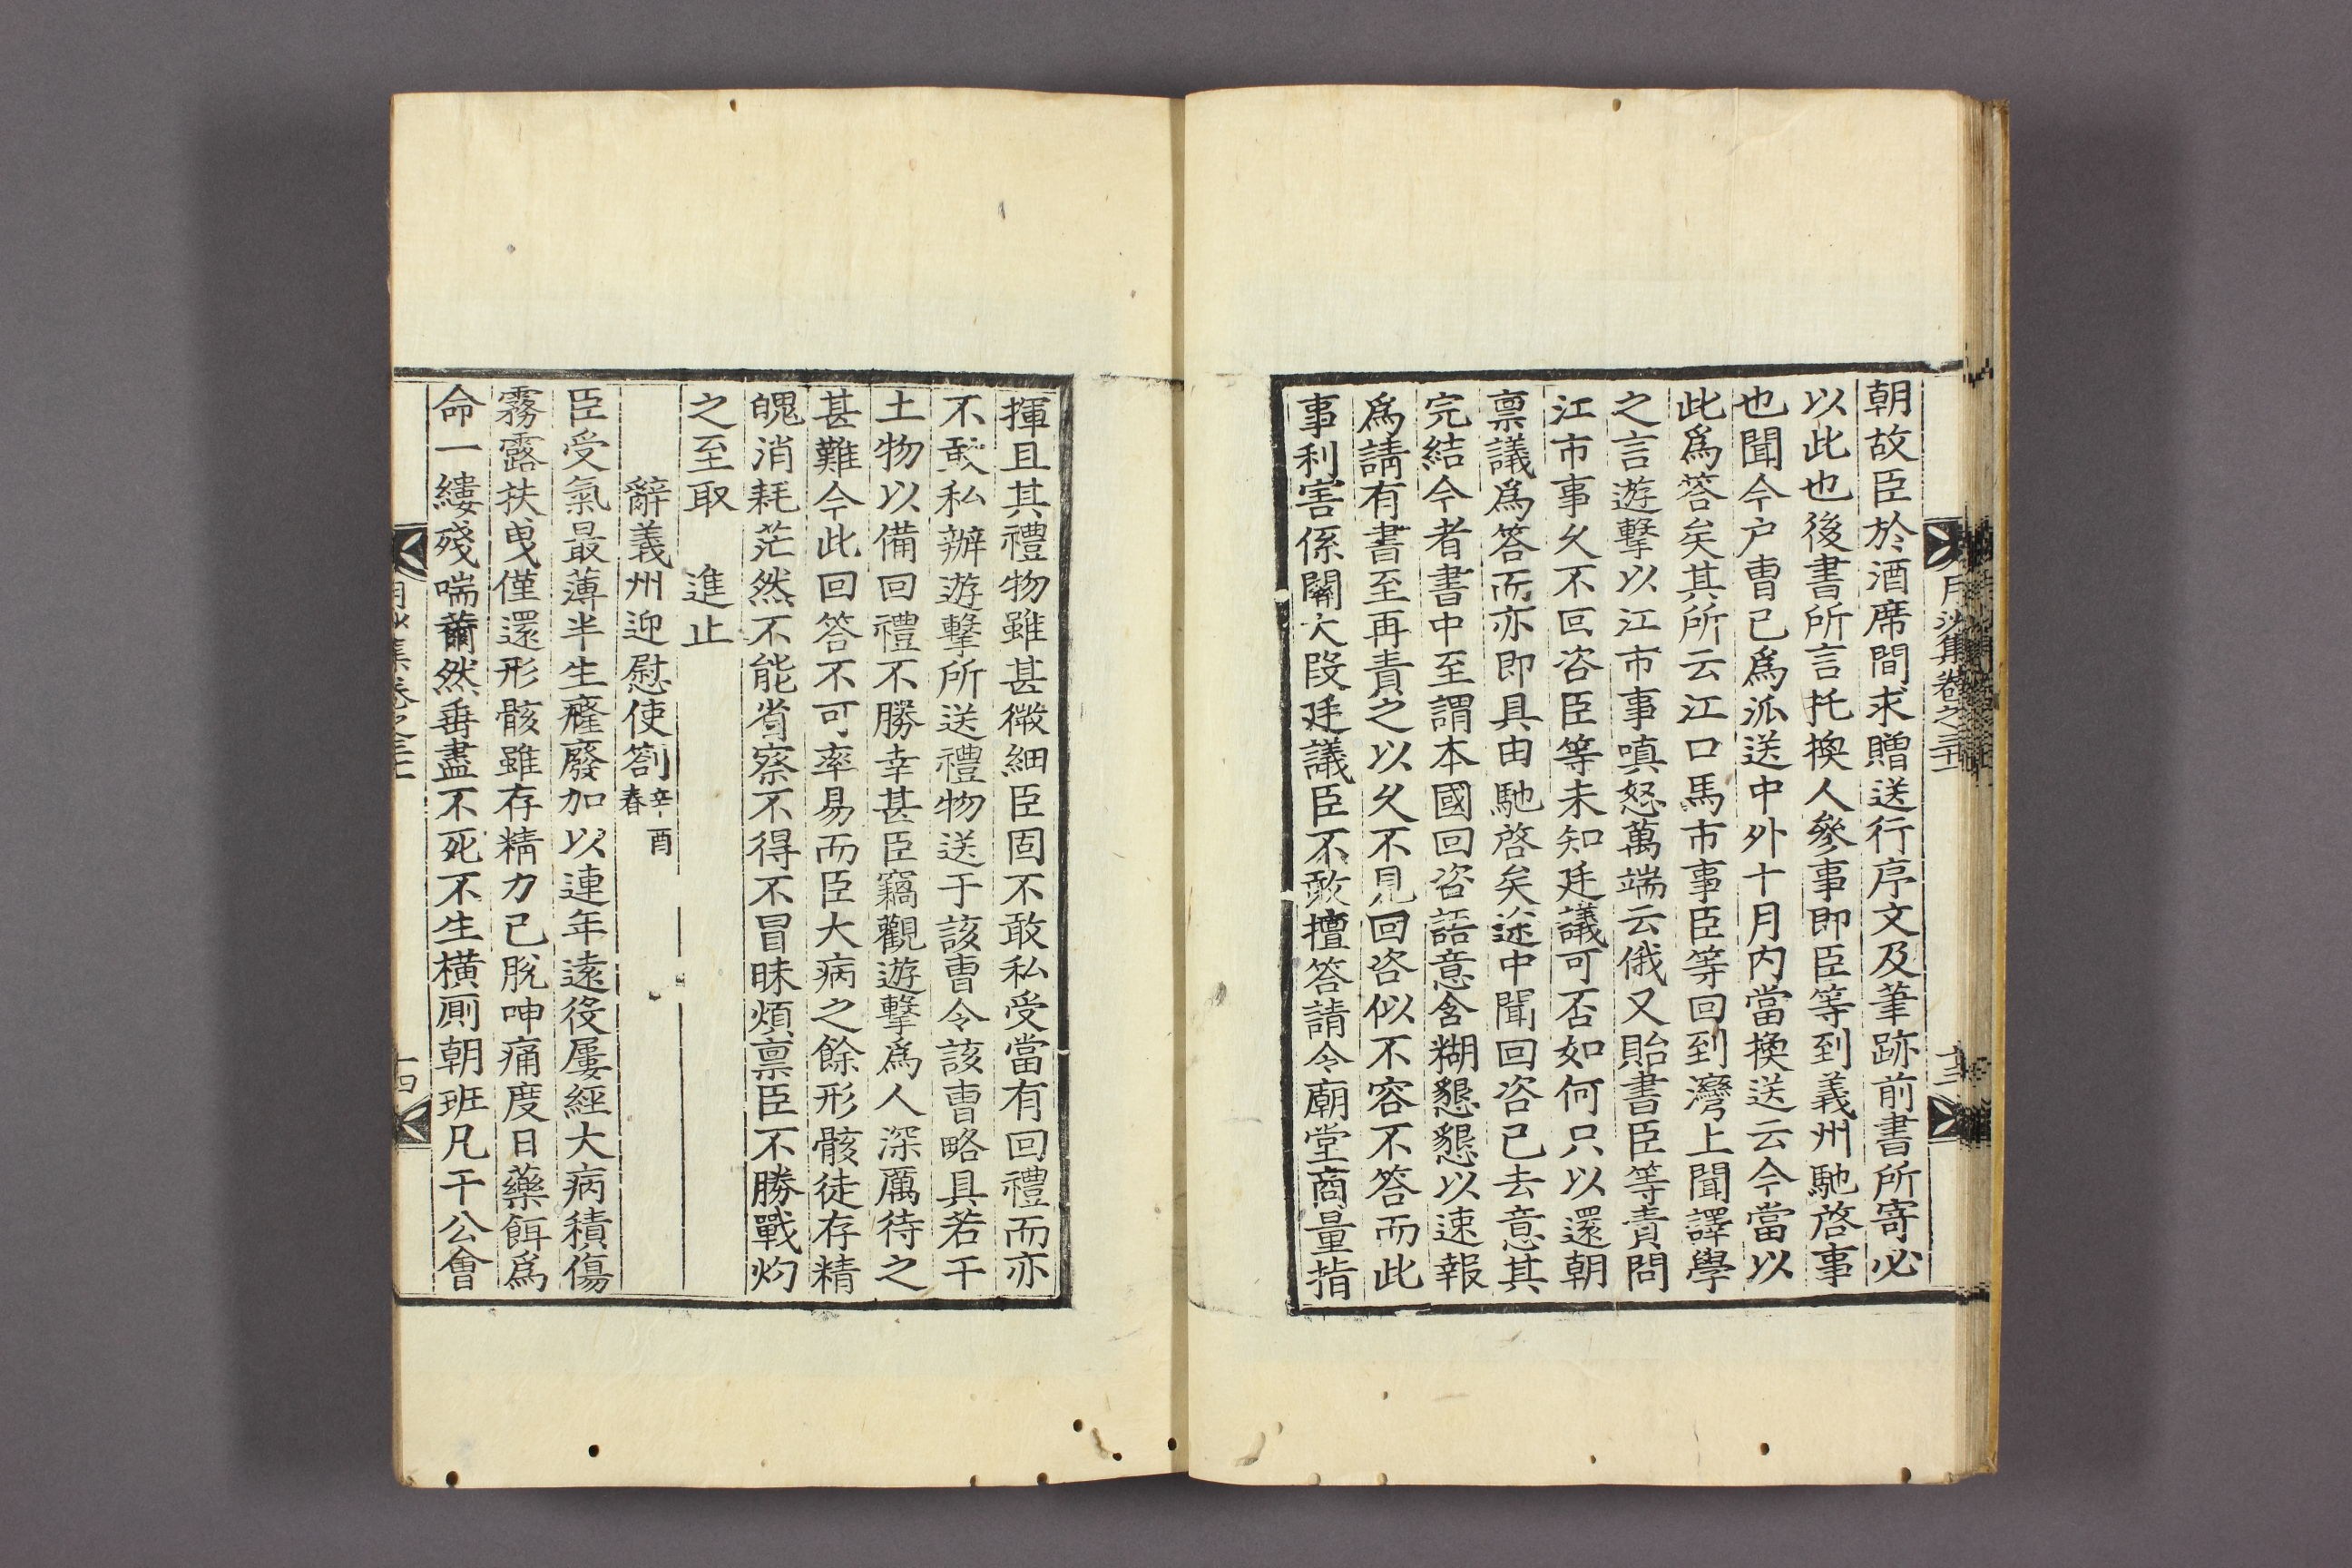 朝故臣於酒席間求贈送行序文及筆跡前書所寄必
以此也後書所言托換人參事即臣等到義州馳啓事
也聞今户曹已爲派送中外十月内當換送云今當以
此爲答矣其所云江口馬市事臣等回到灣上聞譯學
之言遊擊以江市事嗔怒萬端云俄又貽書臣等責問
江市事久不回咨臣等未知廷議可否如何只以還朝
禀議爲答而亦即具由馳啓矣途中聞回咨已去意其
完結今者書中至謂本國回咨語意含糊懇懇以速報
爲請有書至再責之以久不見回咨似不容不答而此
事利害係關大段廷議臣不敢擅答請令廟堂商量指
月沙集卷之三十二
十三
揮且其禮物雖甚微細臣固不敢私受當有回禮而亦
不敢私辦遊擊所送禮物送于該曹令該曹略具若干
土物以備回禮不勝幸甚臣竊觀遊擊爲人深厲待之
甚難今此回答不可率易而臣大病之餘形骸徒存精
魄消耗茫然不能省察不得不冒昧煩禀臣不勝戰灼
之至取 進止
辭義州迎慰使劄辛酉春
臣受氣最薄半生癃廢加以連年遠役屢經大病積傷
霧露扶曳僅還形骸雖存精力已脫呻痛度日藥餌爲
命一縷殘喘薾然垂盡不死不生横厠朝班凡干公會
月沙集卷之三十二
十四